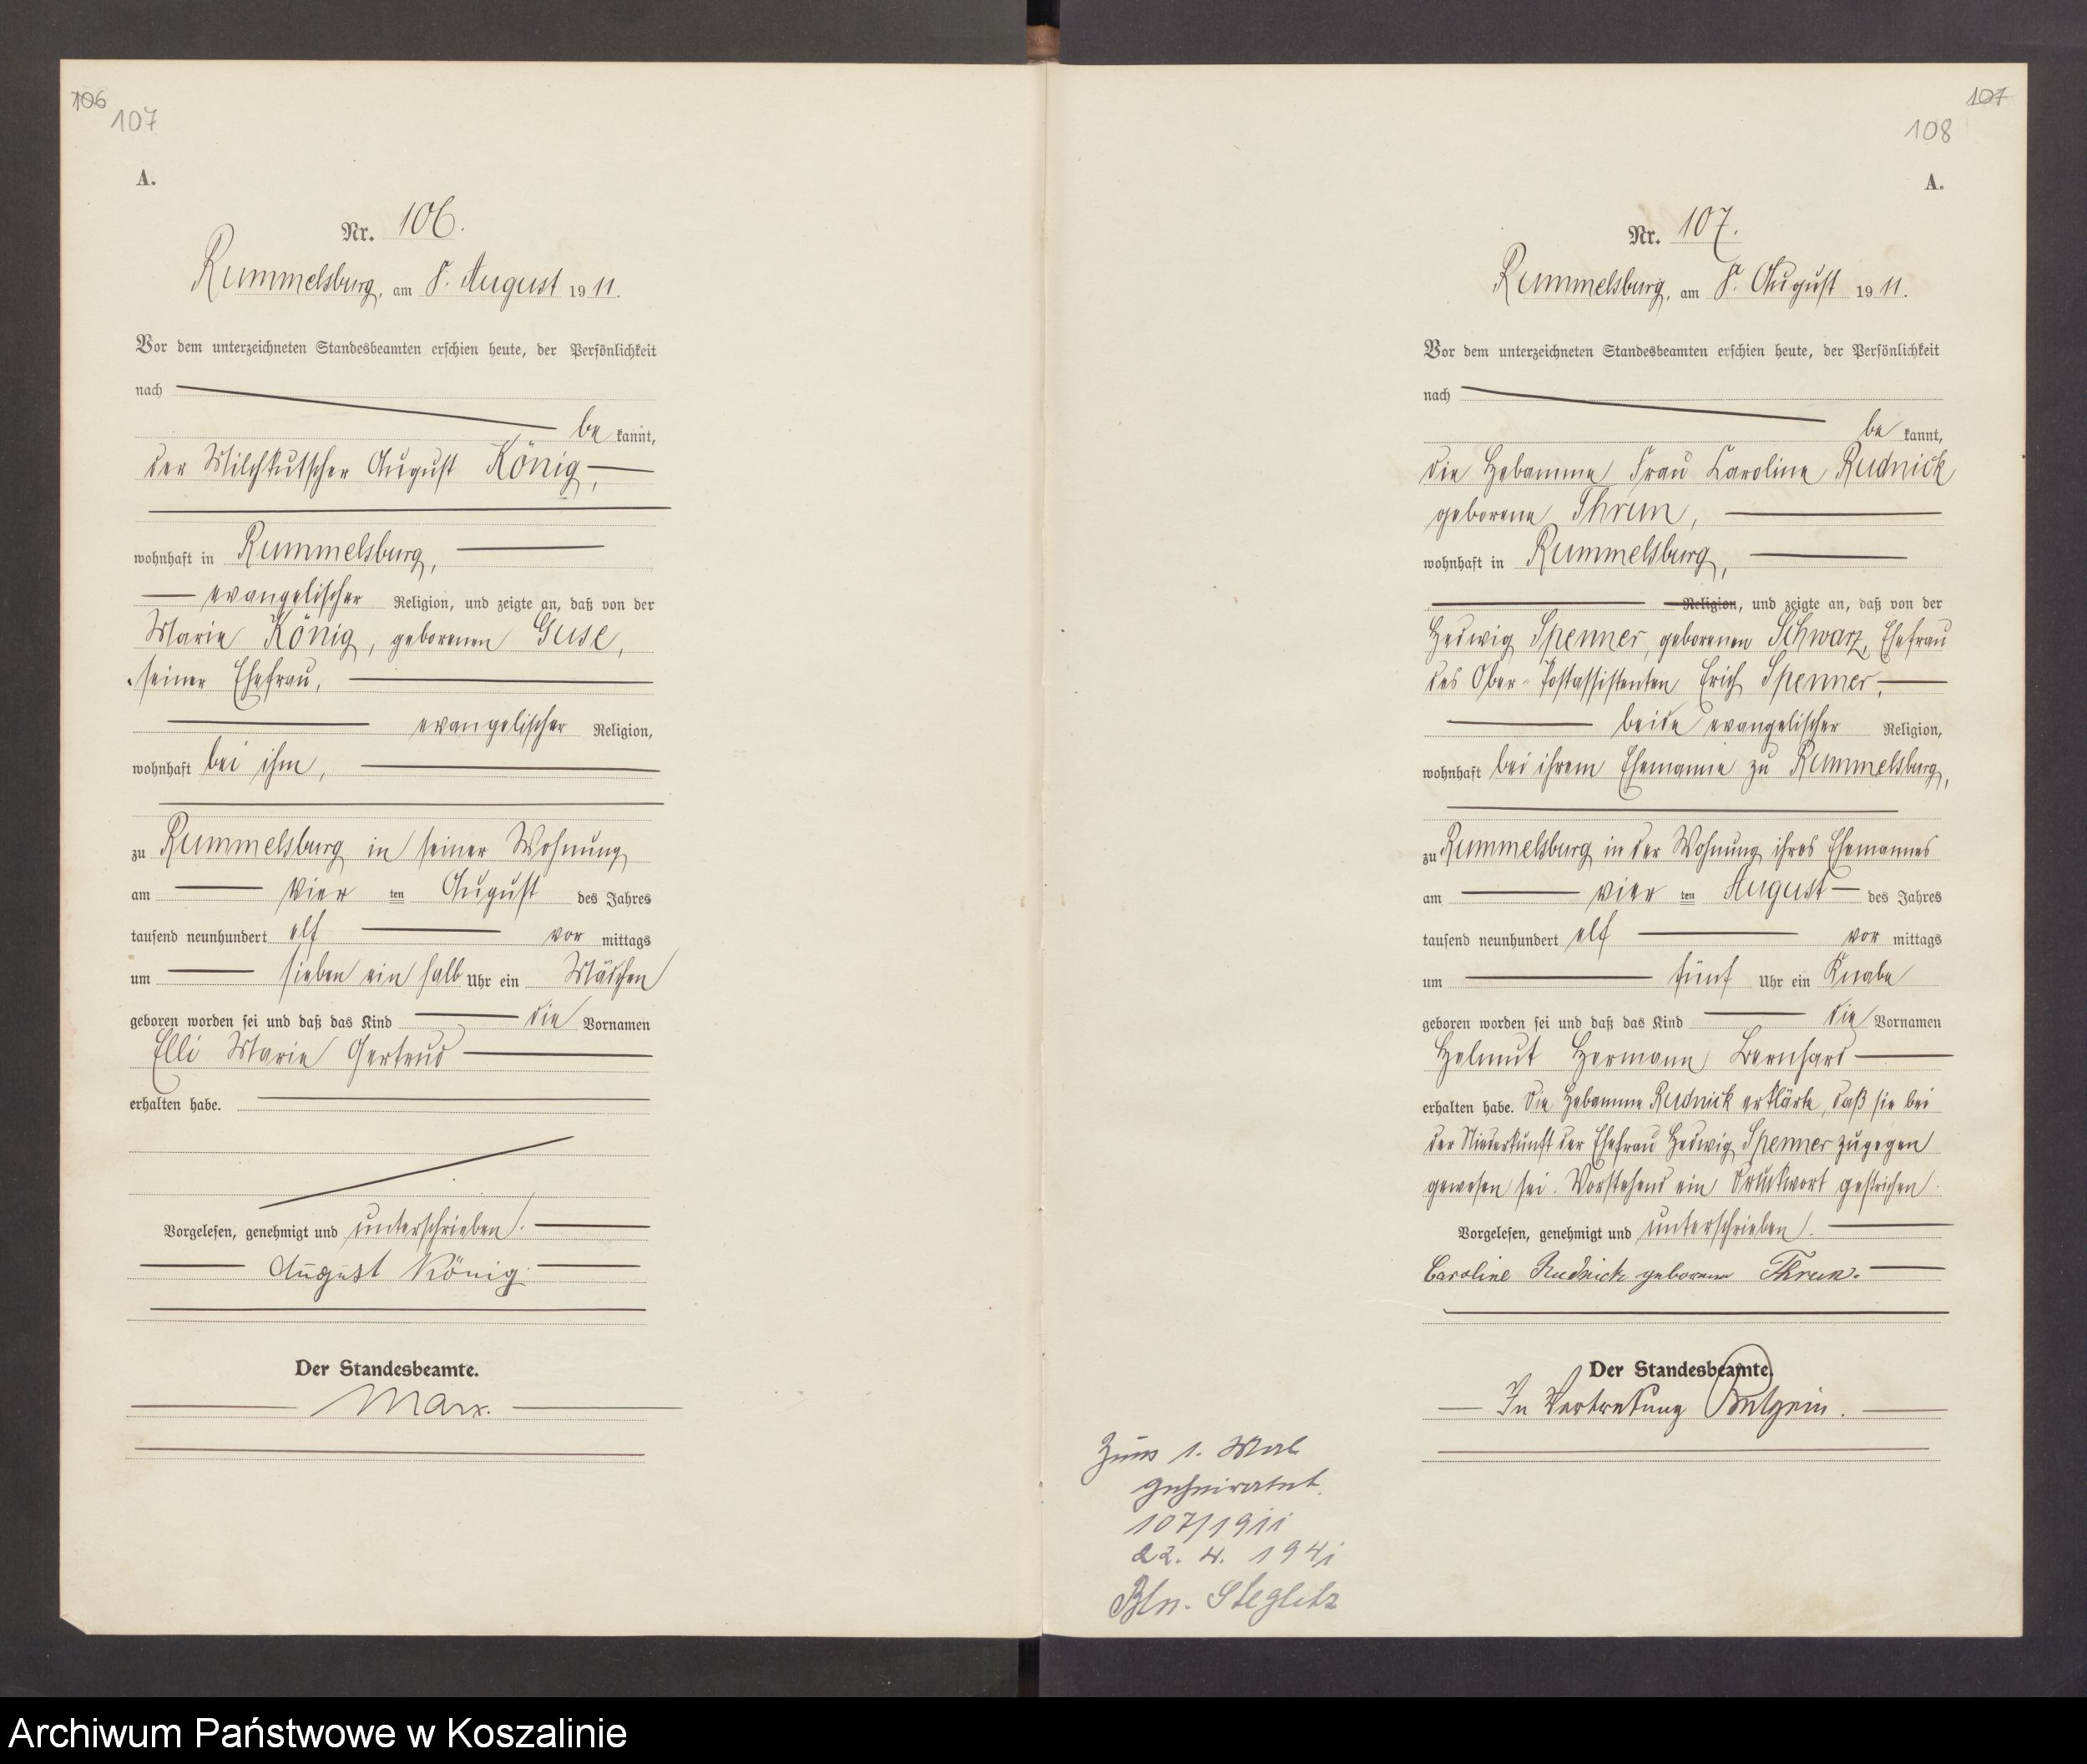 106
107
A.
Nr. 106.
Rummelsburg, am 8. August 1911.
Vor dem unterzeichneten Standesbeamten erschien heute, der Persönlichkeit
nach
be kannt,
der Milchkutscher August König,
wohnhaft in Rummelsburg,
evangelischer Religion, und zeigte an, daß von der
Marie König, geborenen Guse,
seiner Ehefrau,
evangelischer Religion,
wohnhaft bei ihm,
zu Rummelsburg in seiner Wohnung
am vier ten August des Jahres
tausend neunhundert elf vor mittags
um sieben ein halb Uhr ein Mädchen
geboren worden sei und daß das Kind die Vornamen
Elli Marie Gertrud
erhalten habe.
Vorgelesen, genehmigt und unterschrieben.
August König
Der Standesbeamte.
Marx.
107
108
A.
Nr. 107.
Rummelsburg, am 8. August 1911.
Vor dem unterzeichneten Standesbeamten erschien heute, der Persönlichkeit
nach
be kannt,
die Hebamme Frau Caroline Rudnick
geborene Thrun,
wohnhaft in Rummelsburg,
Religion, und zeigte an, daß von der
Hedwig Spenner, geborenen Schwarz, Ehefrau
des Ober-Postassistenten Erich Spenner,
beide evangelischer Religion,
wohnhaft bei ihrem Ehemanne zu Rummelsburg,
zu Rummelsburg in der Wohnung ihres Ehemannes
am vier ten August des Jahres
tausend neunhundert elf vor mittags
um fünf Uhr ein Knabe
geboren worden sei und daß das Kind die Vornamen
Helmut Hermann Bernhard
erhalten habe. Die Hebamme Rudnick erklärte, daß sie bei
der Niederkunft der Ehefrau Hedwig Spenner zugegen
gewesen sei. Vorstehend ein Druckwort gestrichen.
Vorgelesen, genehmigt und unterschrieben.
Caroline Rudnick geborene Thrun.
Der Standesbeamte.
In Vertretung
Zum 1. Mal
geheiratet.
107/1911
22. 4. 1941
Bln. Steglitz
Archiwum Państwowe w Koszalinie